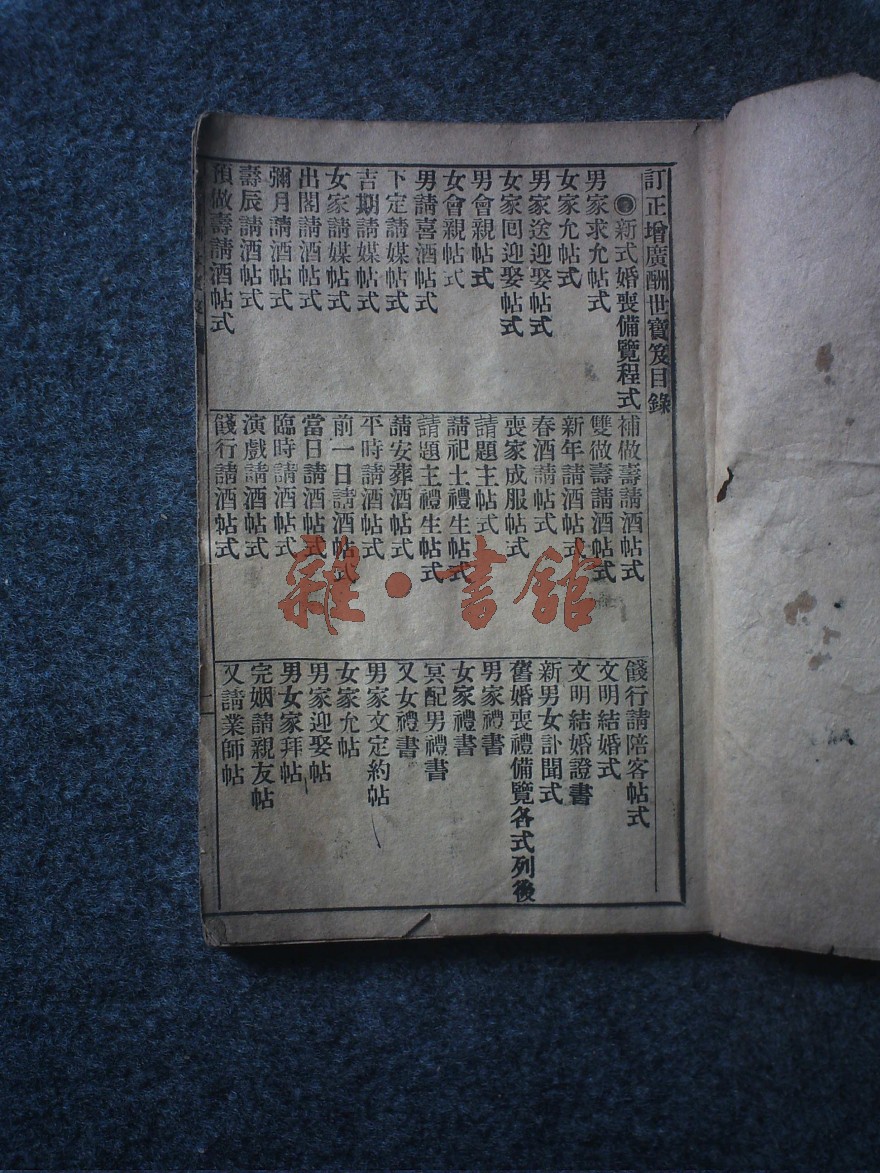 訂正增廣酬世寶笈目錄
新式婚喪備覽程式
男家求允帖式
女家允帖式
男家送迎娶帖式
女家回迎娶帖式
男會親帖式
女會親帖式
男請喜酒帖式
下定請媒帖式
吉期請媒帖式
女家請媒帖式
出閣請酒帖式
彌月請酒帖式
壽辰請酒帖式
預做壽請酒帖式
補做壽請酒帖式
雙做壽請酒帖式
新年請酒帖式
春酒請帖式
喪家成服帖式
請題主帖式
請祀土禮生帖式
請題主禮生帖式
請安葬酒帖式
平時請酒帖式
前一日請酒帖式
當日請酒帖式
臨時請酒帖式
演戲請酒帖式
餞行請酒帖式
餞行請陪客帖式
文明結婚式
文明結婚證書
新男女訃聞式
舊婚喪禮備覽各式列後
男家禮書
女家禮書
冥配男禮書
又女禮書
男家文定約帖
女家允帖
男家迎娶帖
男女家拜帖
完姻請親友帖
又請業師帖
雜·書館